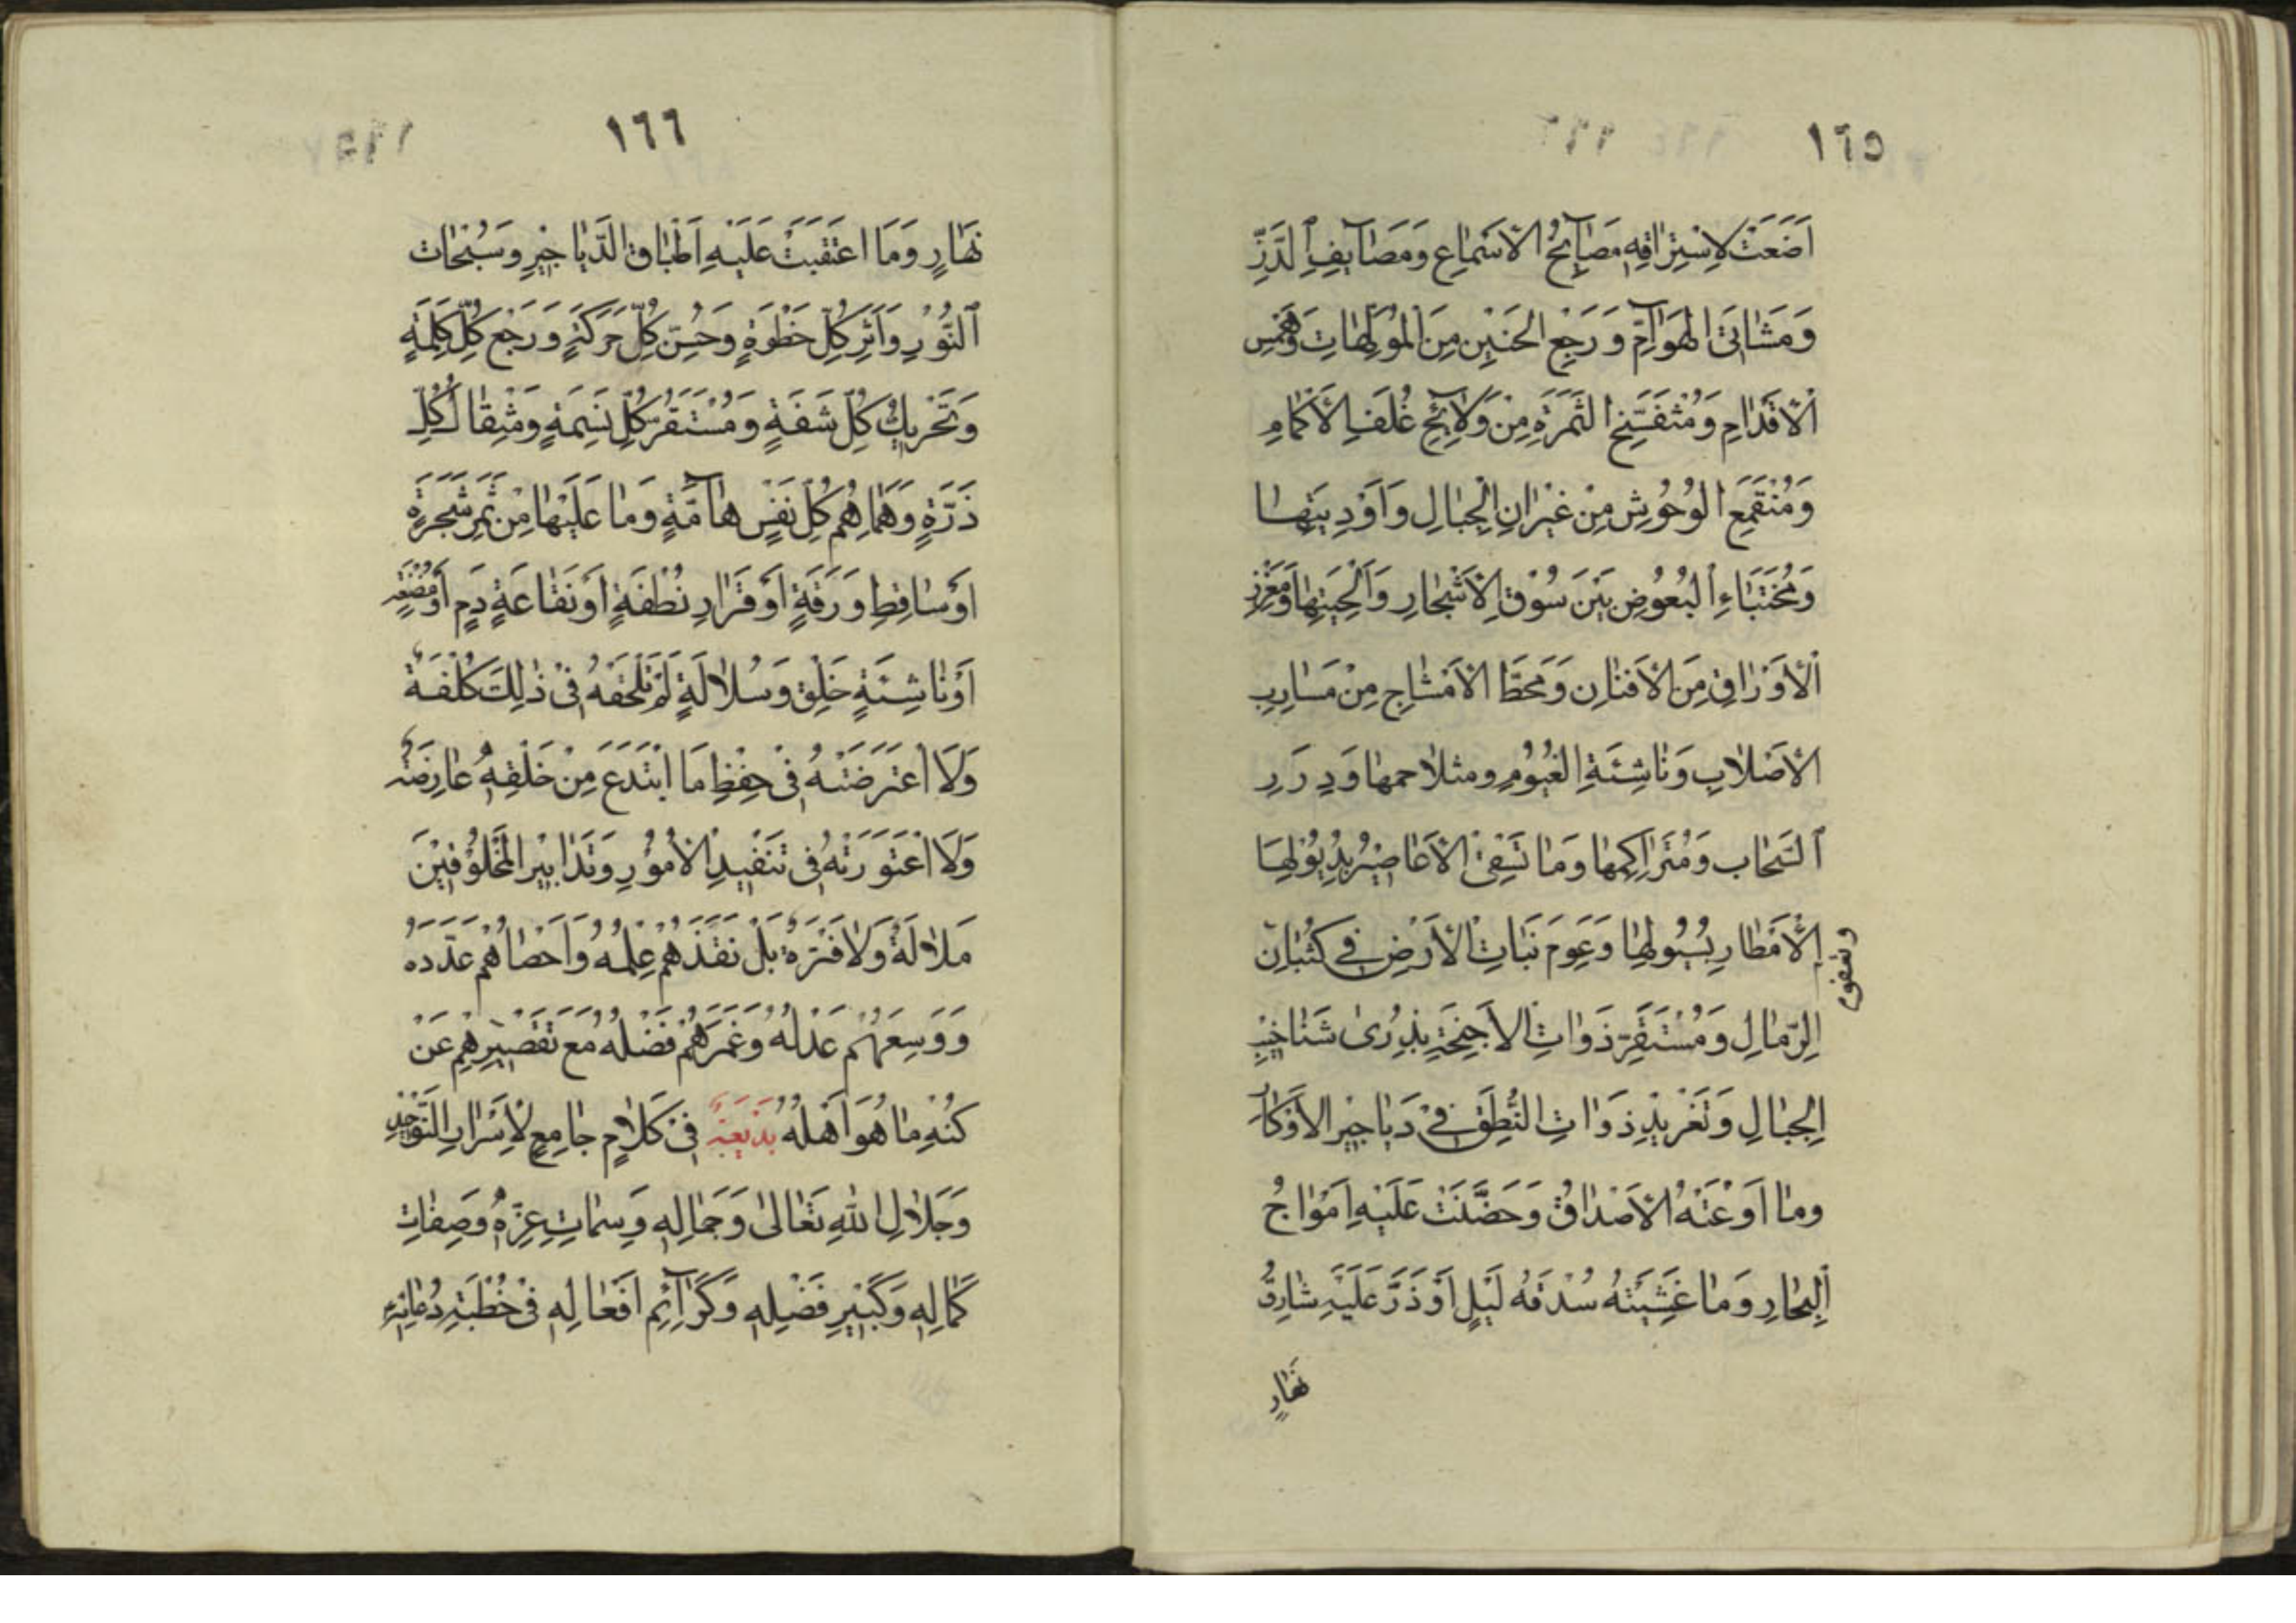 ١٦٥
اَصْغَتْ لِاسْتِرٰاقِهِ مَصَآئِخُ الْاَسْمٰاعِ وَمَصَآيِفِ الذَّرِّ
وَمَشَاتِى الْهَوَآمِّ وَرَجْعِ الْحَنِيْنِ مِنَ الْمُوْلَهٰاتِ وَهَمْسِ
الْاَقْدٰامِ وَمُنْفَتَنِحِ الثَّمَرَةِ مِنْ وَلَآئِجِ غُلَفِ الْاَكْمٰامِ
وَمُنْقَمَعِ الْوُحُوْشِ مِنْ غِيْرٰانِ الْجِبٰالِ وَاَوْدِيَتِهٰا
وَمُخْتَبَاءِ الْبُعُوْضِ بَيْنَ سُوْقِ الْاَشْجٰارِ وَاَلْحِيَتِهٰا وَمَغْرِزِ
الْاَوْرٰاقِ مِنَ الْاَفْنٰانِ وَمَحَطِّ الْاَمْشٰاجِ مِنْ مَسٰارِبِ
الْاَصْلٰابِ وَنٰاشِئَةِ الْغُيُوْمِ ومتلاحمها وَدِرَرِ
السَّحٰابِ وَمُتَرٰاكِمِهٰا وَمٰا تَسْفِى الْاَعٰاصِيْرُ بِذُيُوْلِهَا
الْاَمْطٰارِ بِسُيُولِهٰا وَعَوْمِ نَبَاتِ الْاَرْضِ فِي كُثْبٰانِ
وتعفو
الرِّمٰالِ وَمُسْتَقَرِّ ذَوٰاتِ الْاَجْنِحَةِ بِذُرٰى شَنٰاخِيْبِ
الْجِبٰالِ وَتَغْرِيْدِ ذَوَاتِ النُّطْقِ فِيْ دَيٰاجِيْرِ الاَوْكَارِ
ومٰا اَوْعَتْهُ الْاَصْدٰافُ وَحَضَنَتْ عَلَيْهِ اَمْوٰاجُ
الْبِحٰارِ وَمٰا غَشِيَتْهُ سُدْفَةُ لَيْلٍ اَوْ ذَرَّ عَلَيْهِ شٰارِقُ
نَهٰارٍ
١٦٦
نَهٰارٍ وَمَا اعْتَقَبَتْ عَلَيْهِ اَطْبٰاقُ الدَّيٰاجِيْرِ وَسُبُحٰات
النُّوْرِ وَاَثَرِ كُلِّ خَطْوَةٍ وَحُسْنِ كُلِّ حَرَكَةٍ وَرَجْعِ كُلِّ كَلِمَةٍ
وَتَحْرِيْكِ كُلِّ شَفَةٍ وَمُسْتَقَرِّ كُلِّ نَسَمَةٍ وَمِثْقٰالِ كُلِّ
ذَرَّةٍ وَهَمٰاهِمِ كُلِّ نَفْسٍ هٰآمَّةٍ وَمٰا عَلَيْهٰا مِنْ ثَمَرِ شَجَرَةٍ
اَوْ سٰاقِطِ وَرَقَةٍ اَوْ قَرٰارِ نُطْفَةٍ اَوْ نَقٰاعَةِ دَمٍ اَوْ مُضْغَةٍ
اَوْ نٰاشِئَةِ خَلْقٍ وَسُلٰالَةٍ لَمْ تَلْحَقْهُ فِىْ ذٰلِكَ كُلْفَةٌ
وَلَا اعْتَرَضَتْهُ فِىْ حِفْظِ مَا ابْتَدَعَ مِنْ خَلْقِهِ عٰارِضَةٌ
وَلَا اعْتَوَرَتْهُ فِى تَنْفِيْذِ الْاُمُوْرِ وَتَدٰابِيْرِ الْمَخْلُوْقِيْنَ
مَلٰالَةٌ وَلٰا فَتْرَةٌ بَلْ نَفَذَهُمْ عِلْمُهُ وَاَحْصٰاهُمْ عَدَدَهُ
وَوَسِعَهُمْ عَدْلُهُ وَغَمَرَهُمْ فَضْلُهُ مَعَ تَقْصِيْرِهِمْ عَنْ
كُنْهِ مٰا هُوَ اَهْلُهُ فِىْ كَلٰامٍ جٰامِعٍ لِاَسْرٰارِ التَّوْحِيْدِ
وَجَلٰالِ اللهِ تَعٰالىٰ وَجَمٰالِهِ وَسِمٰاتِ عِزِّهِ وَصِفٰاتِ
كَمٰالِهِ وَكَبِيْرِ فَضْلِهِ وَكَرَآئِمِ اَفْعٰالِهِ فِىْ خُطْبَةِ دُعٰائِهِ